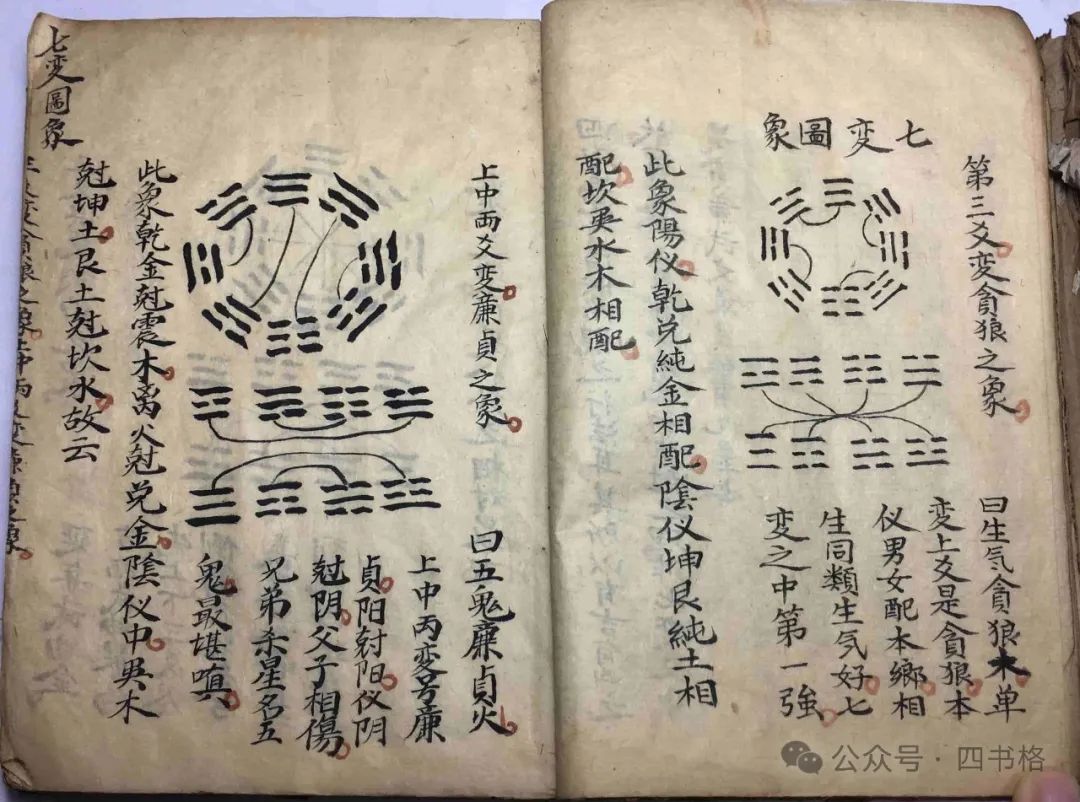 七变圖象
第三爻变貪狼之象
曰生气貪狼木单
变上爻是貪狼本
仪男女配本鄉相
生同類生气好七
变之中第一強
此象陽仪乾兑純金相配陰仪坤艮純土相
配坎巽水木相配
上中両爻变廉貞之象
曰五鬼廉貞火
上中丙变号廉
貞阳尅阳仪阴
尅阴父子相傷
兄弟杀星名五
鬼最堪嗔
此象乾金尅震木离火尅兑金陰仪中巽木
尅坤土艮土尅坎水故云
七变圖象
上中両爻变廉貞之象
公众号·四书格